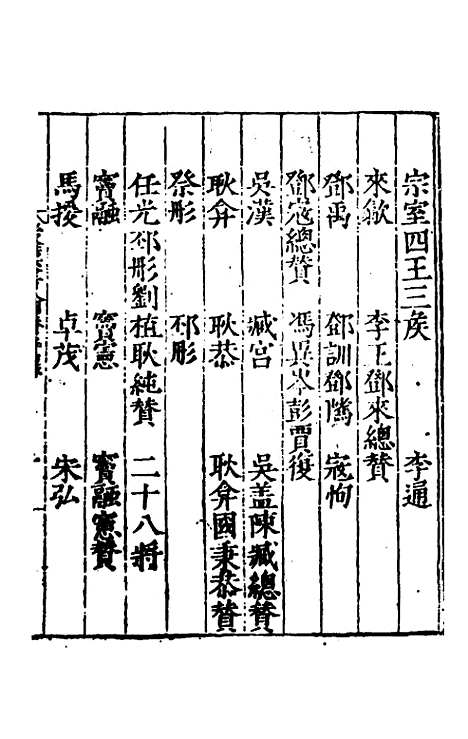 宗室四王三侯 李通
來歙 李王鄧來總贊
鄧禹 鄧訓鄧隲 寇恂
鄧寇總贊 馮異岑彭賈復
吳漢 臧宮 吳盖陳臧總贊
耿弇 耿恭 耿弇國秉恭贊
祭肜 邳肜
任光邳肜劉植耿純贊 二十八將
竇融 竇憲 竇融憲贊
馬援 卓茂 宋弘